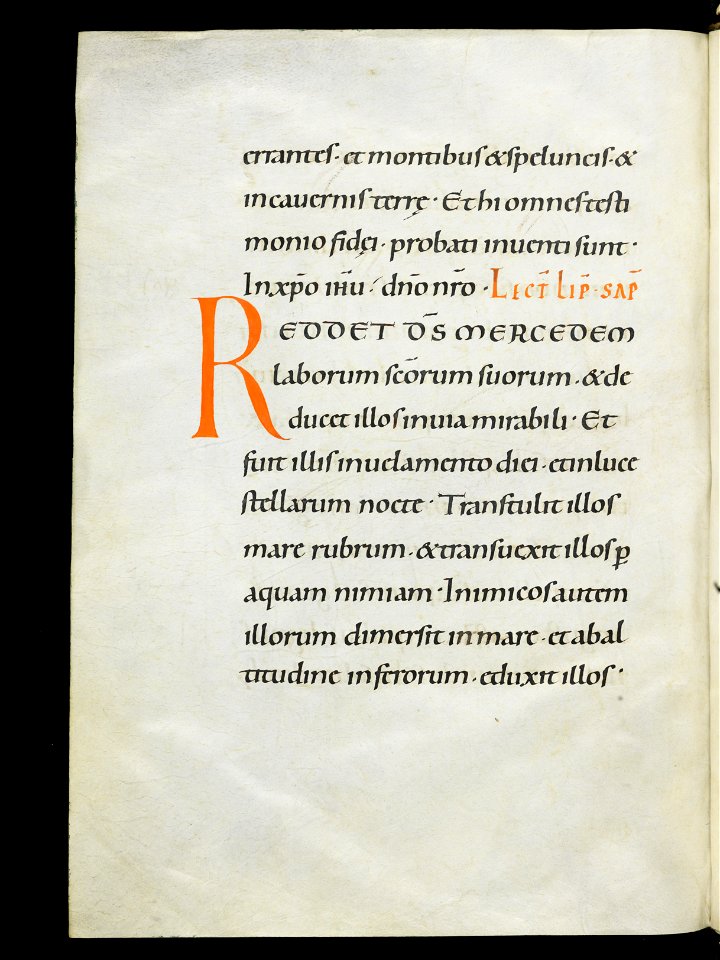 errantes· et montibus & speluncis· &
in cauernis terrę· Et hi omnes testi
monio fidei· probati inuenti sunt·
In xp̄o ih̄u· dn̄o nr̄o· LECT̄ LIP̄· SAP̄
REDDET D̄S MERCEDEM
laborum sc̄orum suorum· & de
ducet illos in uia mirabili· Et
fuit illis in uelamento diei· et in luce
stellarum nocte· Transtulit illos
mare rubrum· & transuexit illos ꝑ
aquam nimiam· Inimicos autem
illorum dimersit in mare· et ab al
titudine inferorum· eduxit illos·